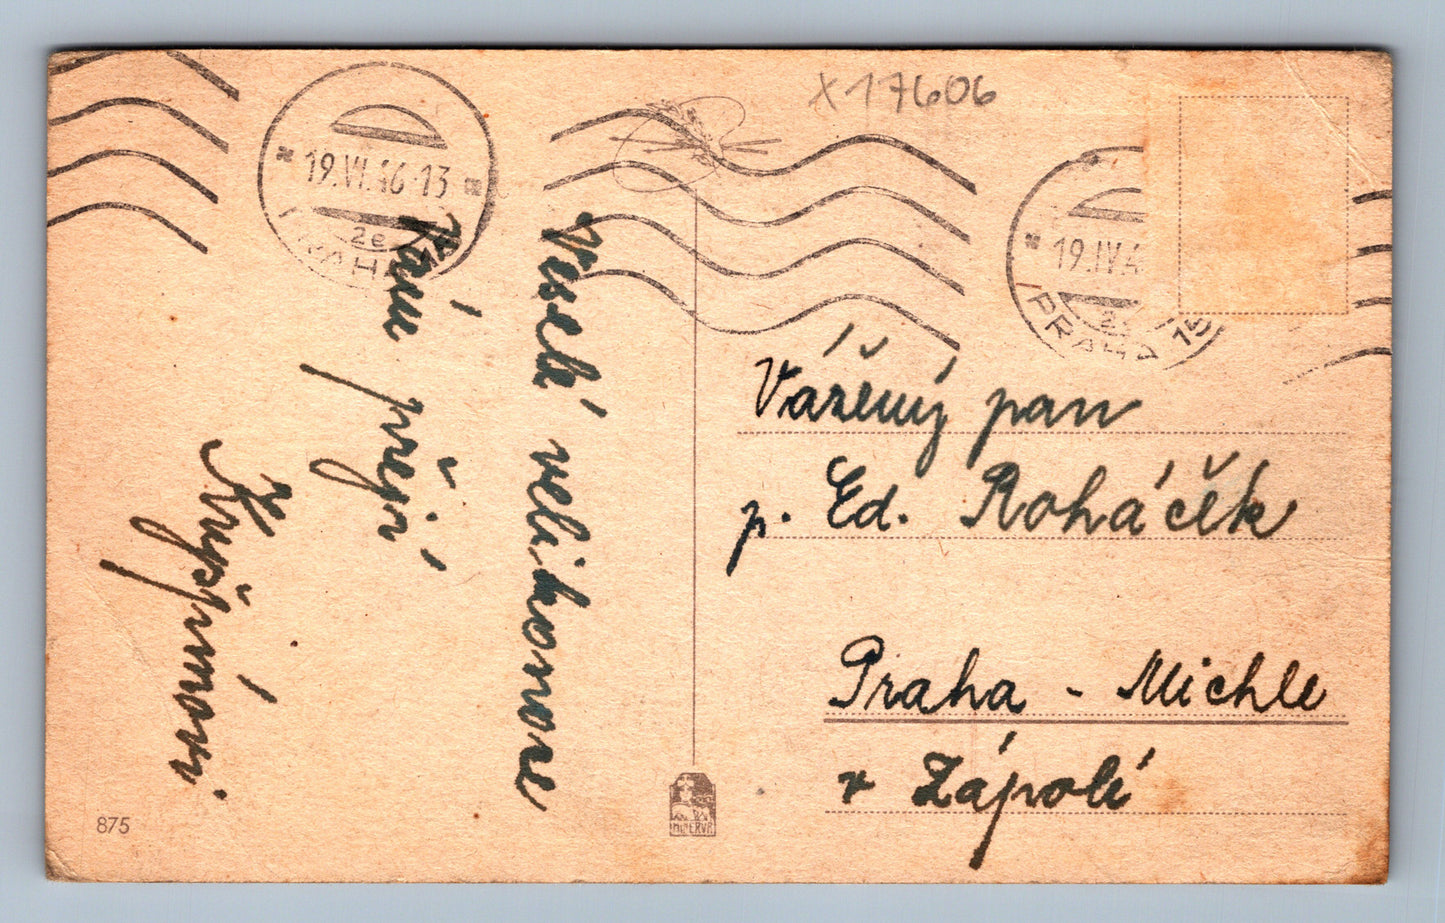 x17606
19.VI.46-13
2e
PRAHA
19.IV.4
PRAHA 15
Veselé velikonoce
Vám přejí
Vážený pan
p. Ed. Roháček
Praha - Michle
v Zápolí
875
MINERVA